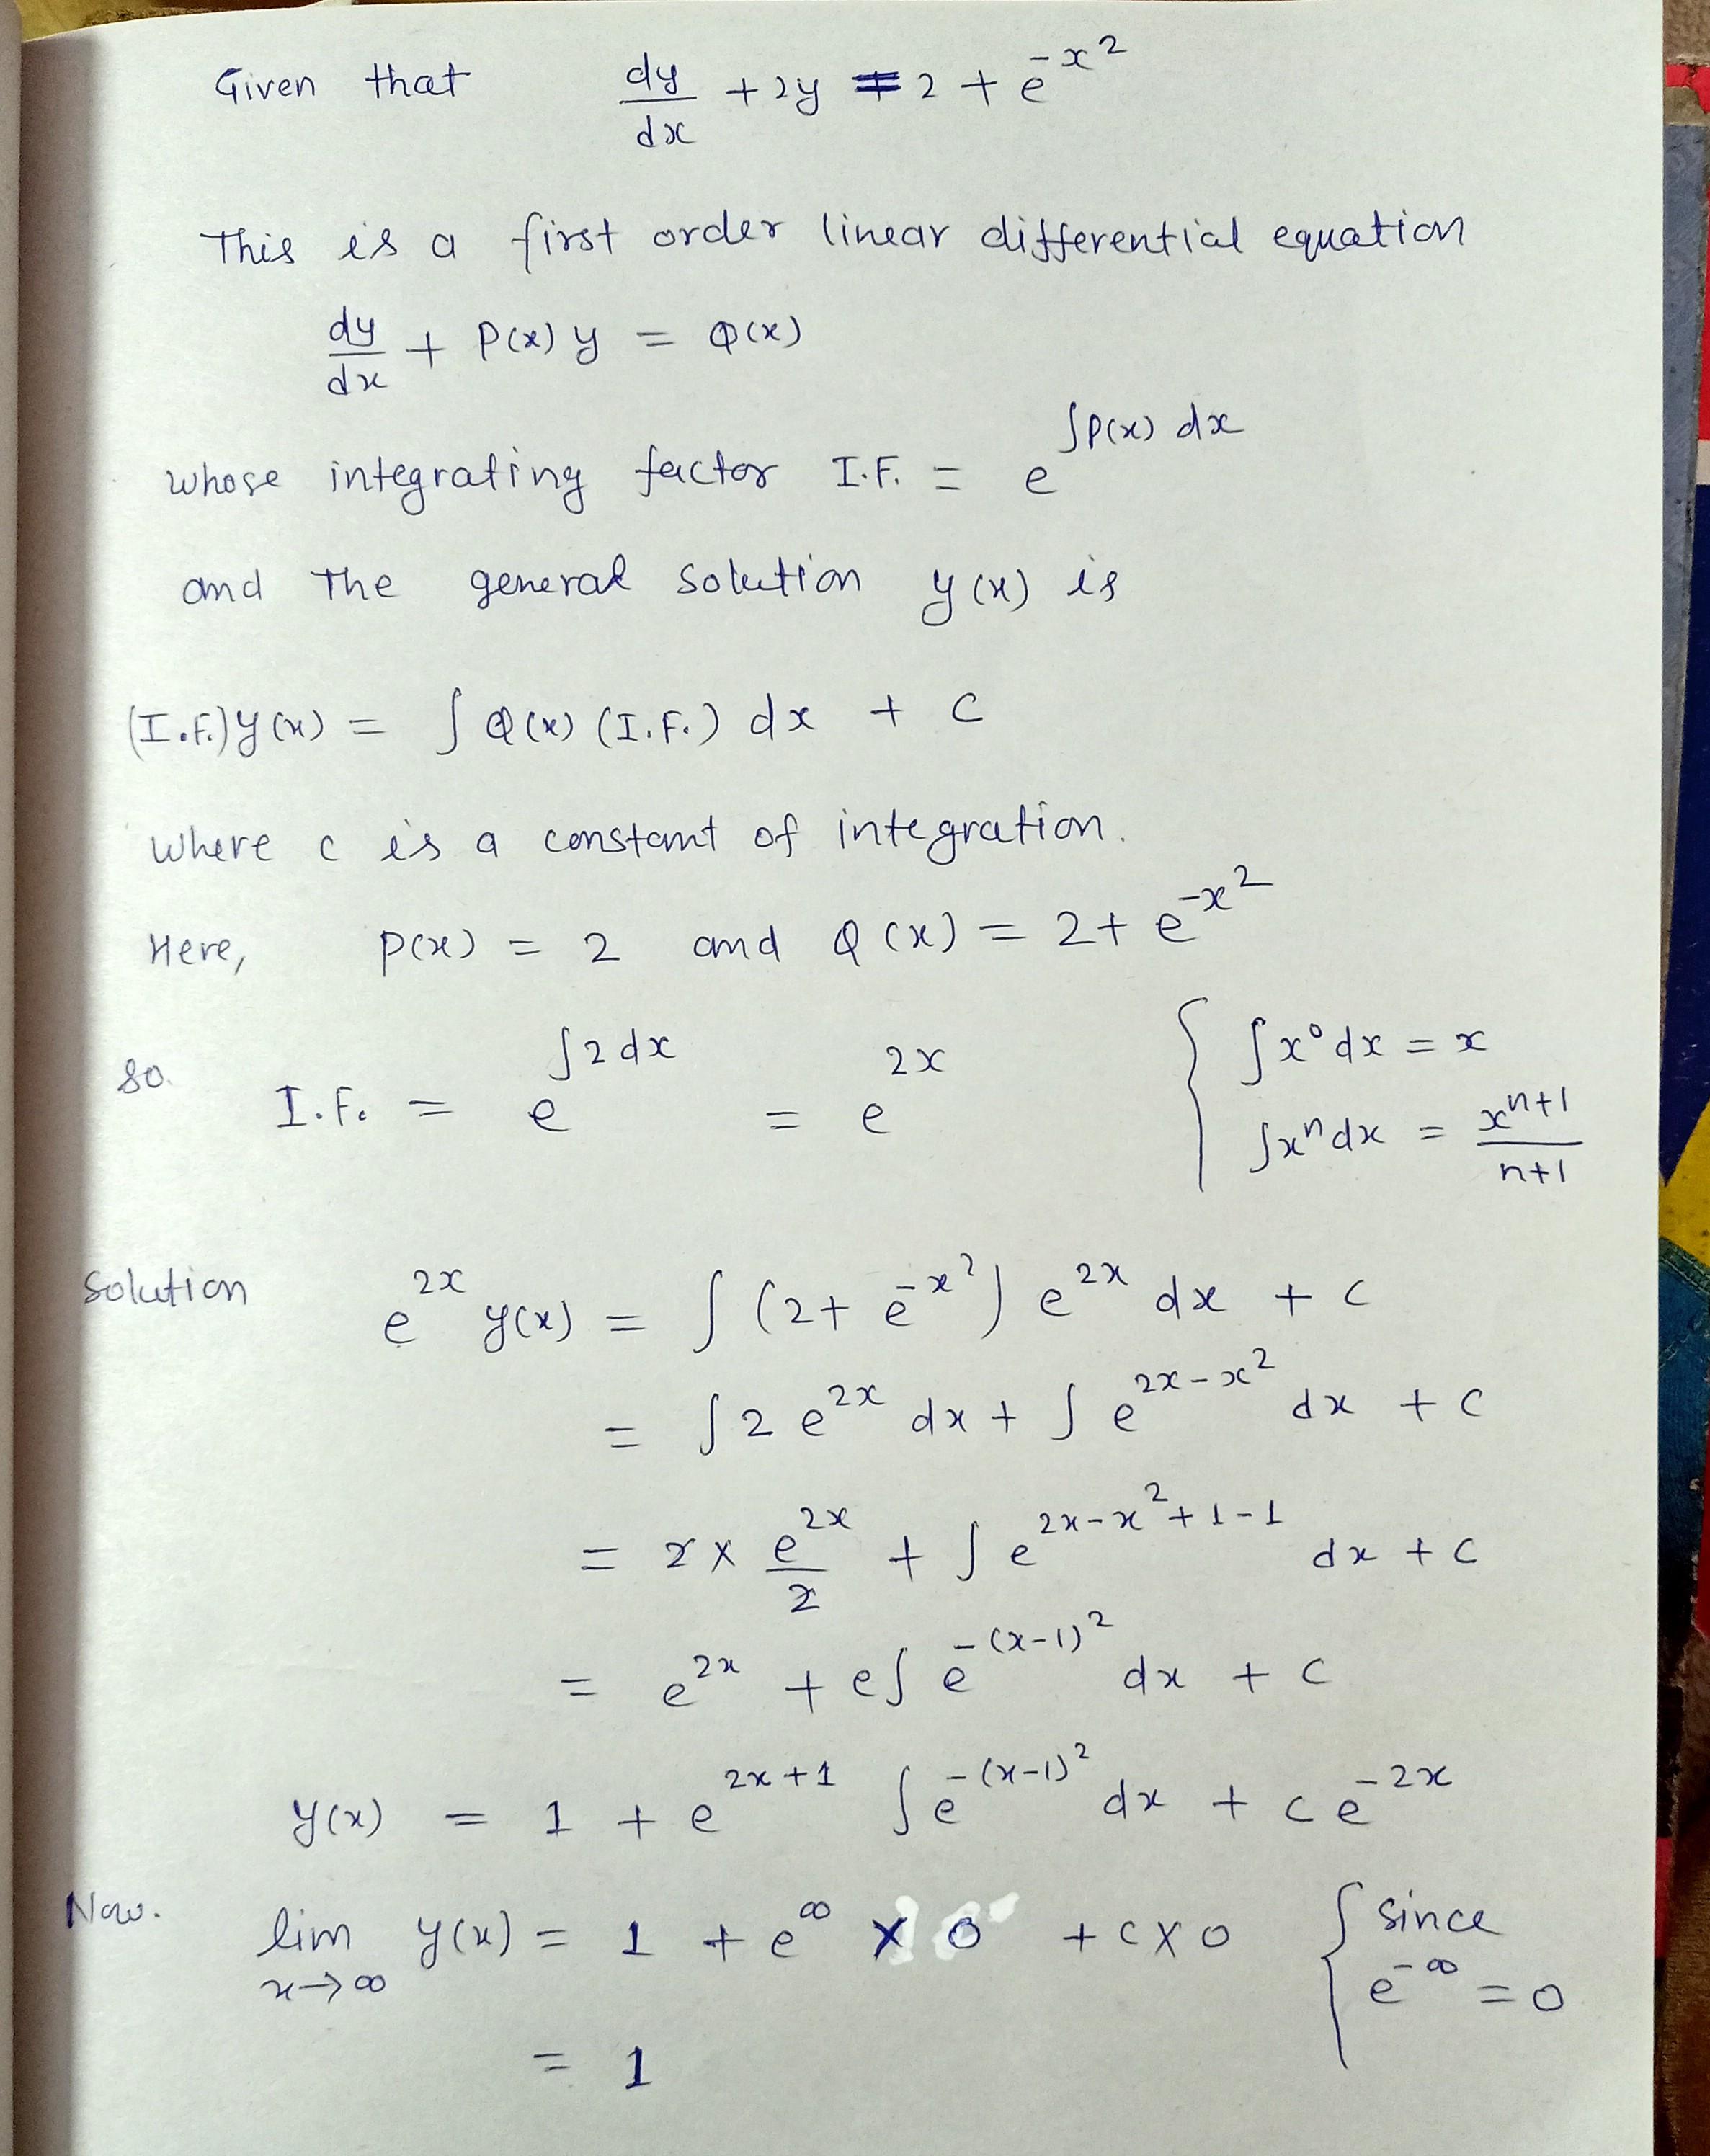 Given that dy/dx + 2y = 2 + e^{-x^2}
This is a first order linear differential equation
dy/dx + P(x) y = Q(x)
whose integrating factor I.F. = e^{∫P(x) dx}
and the general solution y(x) is
(I.F.)y(x) = ∫ Q(x) (I.F.) dx + c
where c is a constant of integration.
Here, P(x) = 2 and Q(x) = 2 + e^{-x^2}
So. I.F. = e^{∫2dx} = e^{2x} { ∫x^0 dx = x
∫x^n dx = x^{n+1}/(n+1)
Solution e^{2x} y(x) = ∫ (2 + e^{-x^2}) e^{2x} dx + c
= ∫ 2 e^{2x} dx + ∫ e^{2x-x^2} dx + c
= 2 × e^{2x}/2 + ∫ e^{2x-x^2+1-1} dx + c
= e^{2x} + e∫ e^{-(x-1)^2} dx + c
y(x) = 1 + e^{2x+1} ∫ e^{-(x-1)^2} dx + c e^{-2x}
Now. lim_{x→∞} y(x) = 1 + e^{∞} × 0 + c × 0 { since
e^{-∞} = 0
= 1